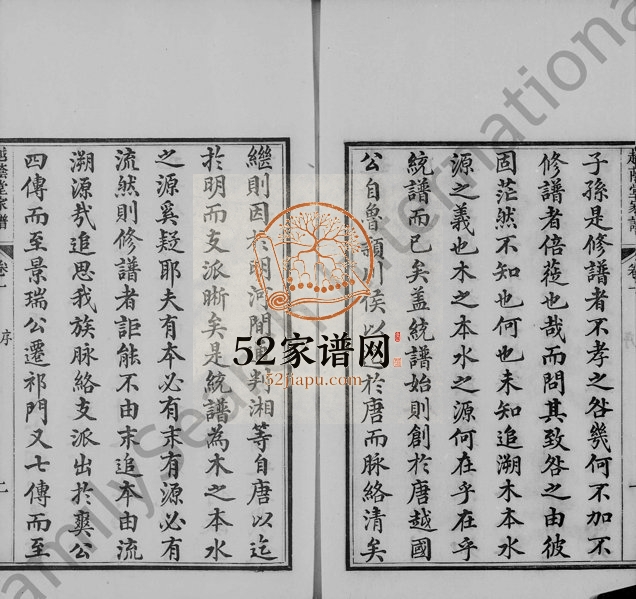 子孫是修譜者不孝之咎幾何不加不
修譜者倍蓰也哉而問其致咎之由彼
固茫然不知也何也未知追溯木本水
源之義也木之本水之源何在乎在乎
統譜而已矣蓋統譜始則創於唐越國
公自魯潁川侯以於唐而脈絡清矣
繼則因於明河間判湘等自唐以迄
於明而支派晰矣是統譜為木之本水
之源奚疑耶夫有本必有末有源必有
流然則修譜者詎能不由末追本由流
溯源哉追思我族脈絡支派出於奭公
四傳而至景瑞公遷祁門又七傳而至
卷一
序
二
52家谱网
52jiapu.com
FamilySearch International